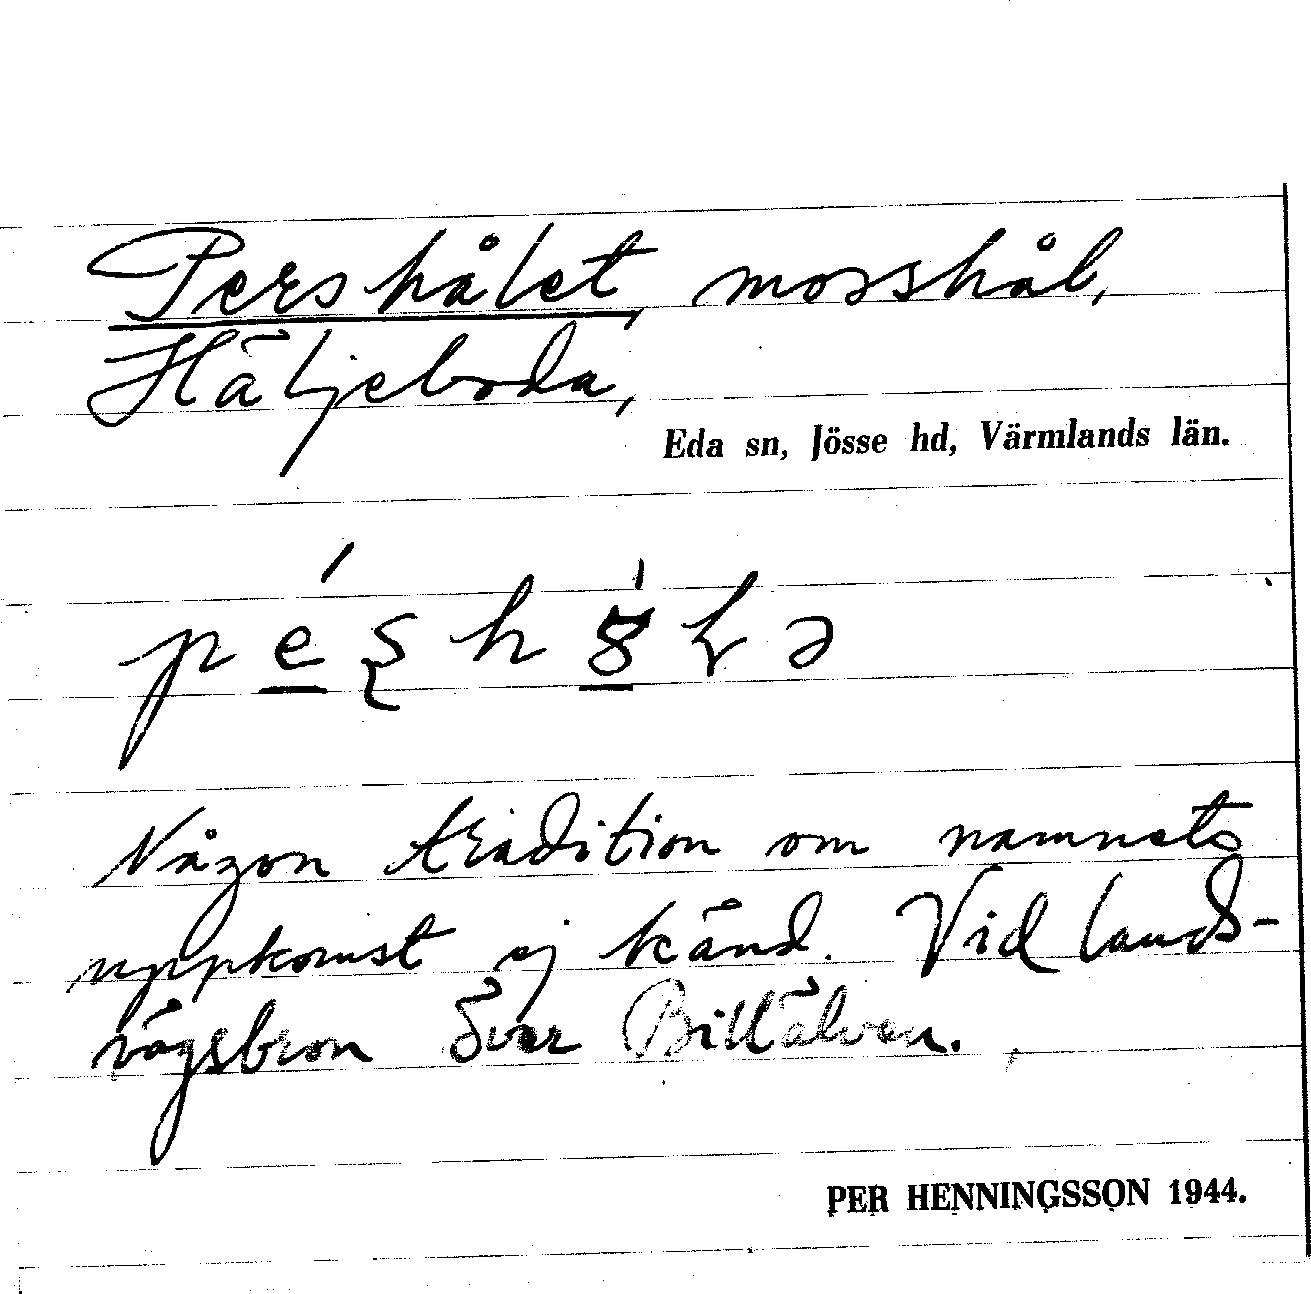 Pershålet, mosshål,
Häljeboda,
Eda sn, Jösse hd, Värmlands län.
Någon tradition om namnets
uppkomst ej känd. Vid lands-
vägsbron över Billälven.
PER HENNINGSSON 1944.